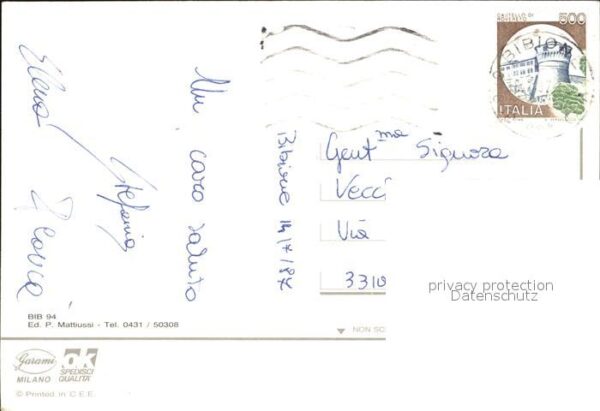 CASTELLO DI ROVERETO
500
BIBION
ITALIA
Un caro saluto
Bibione 14/7/87
Elena Stefania
Gent.ma Signora
Vecc
Via
3310
privacy protection
Datenschutz
BIB 94
Ed. P. Mattiussi - Tel. 0431 / 50308
NON SC
Garami
MILANO
ok
SPEDISCI
QUALITÀ
© Printed in C.E.E.